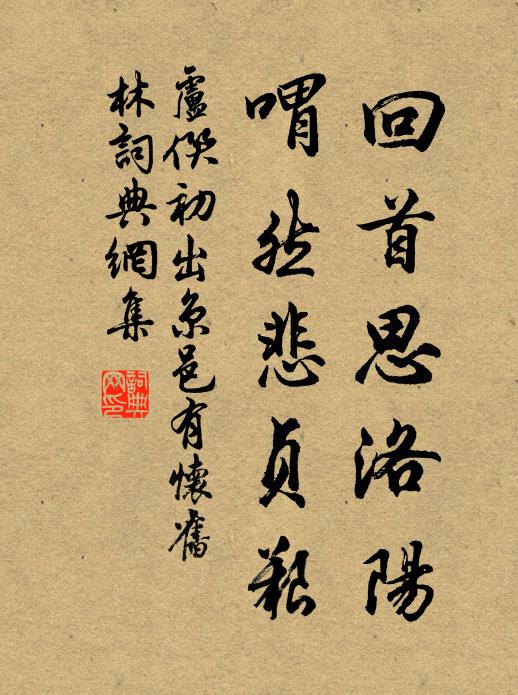 回首思洛陽
喟然悲貞艱
盧僎初出京邑有懷舊
林詞典網集
詞典